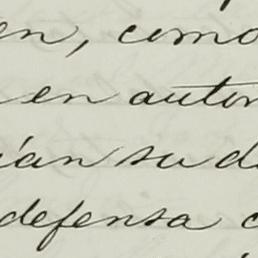 en, como
en autor
ían su de
defensa c